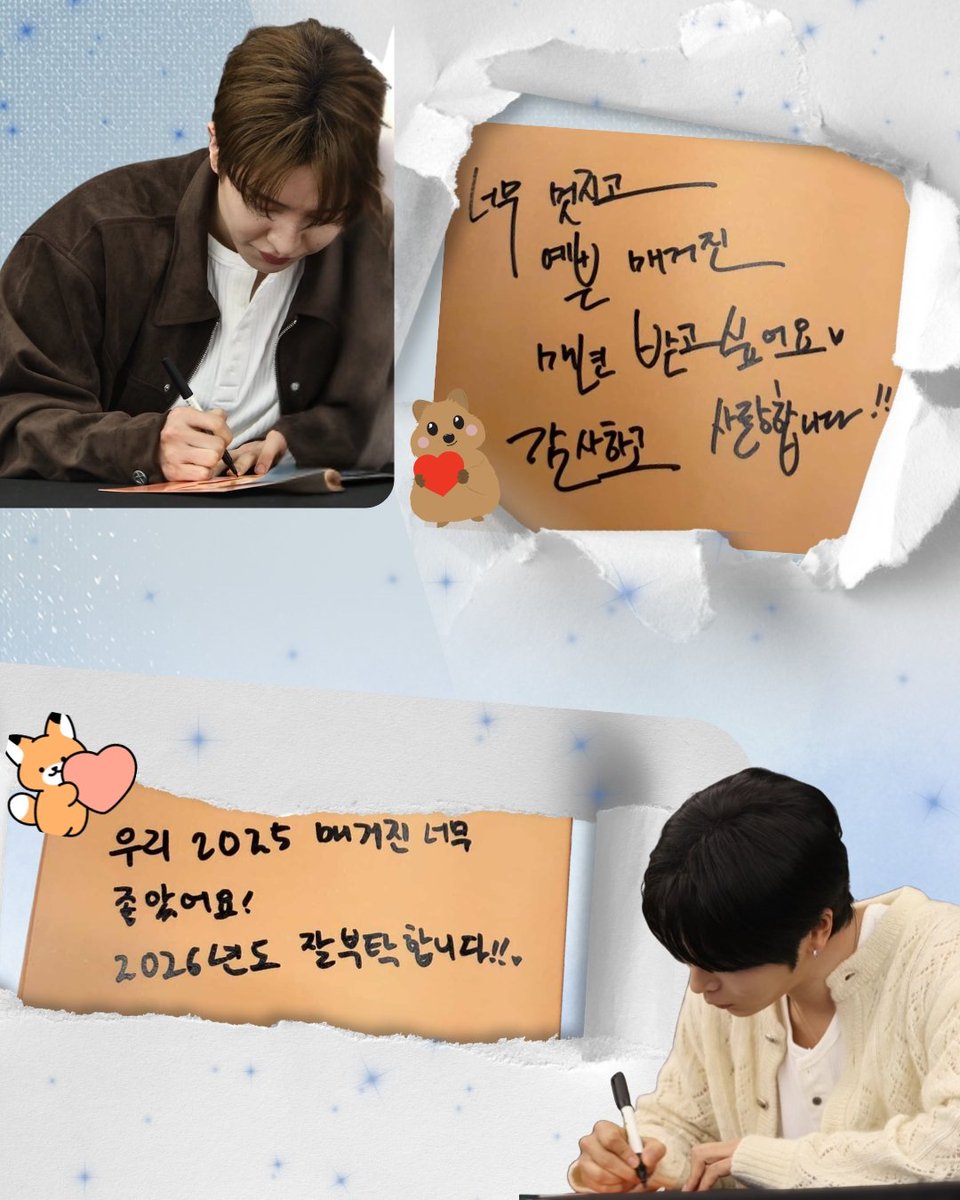 너무 멋진고
예쁜 매거진
매년 받고싶어요♥
감사하고 사랑합니다!!
우리 2025 매거진 너무
좋았어요!
2026년도 잘부탁합니다!!♥